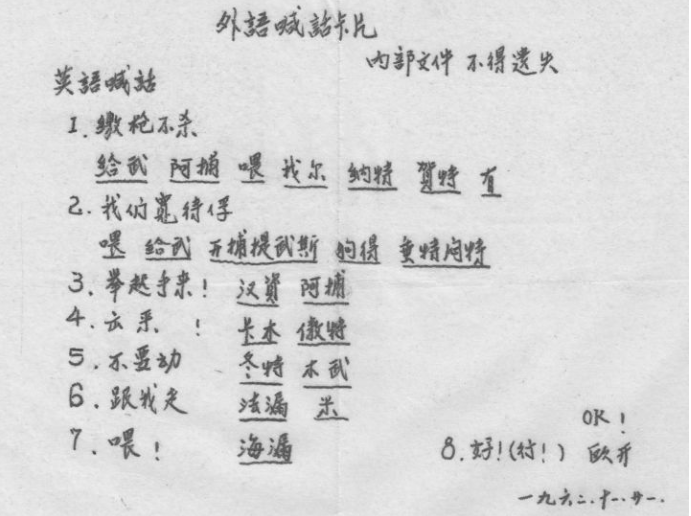 外語喊話卡片
内部文件 不得遺失
英語喊話
1. 繳枪不杀
给武 阿捕 喂 我尔 纳特 賀特 有
2. 我们寬待俘
喂 给武 开捕提武斯 的得 重特门特
3. 举起手来! 汉資 阿捕
4. 出来 ! 卡木 傲特
5. 不要动 冬特 木武
6. 跟我走 法漏 米
7. 喂! 海漏
OK!
8. 好!(行!) 欧开
一九六二.十一.廿一.